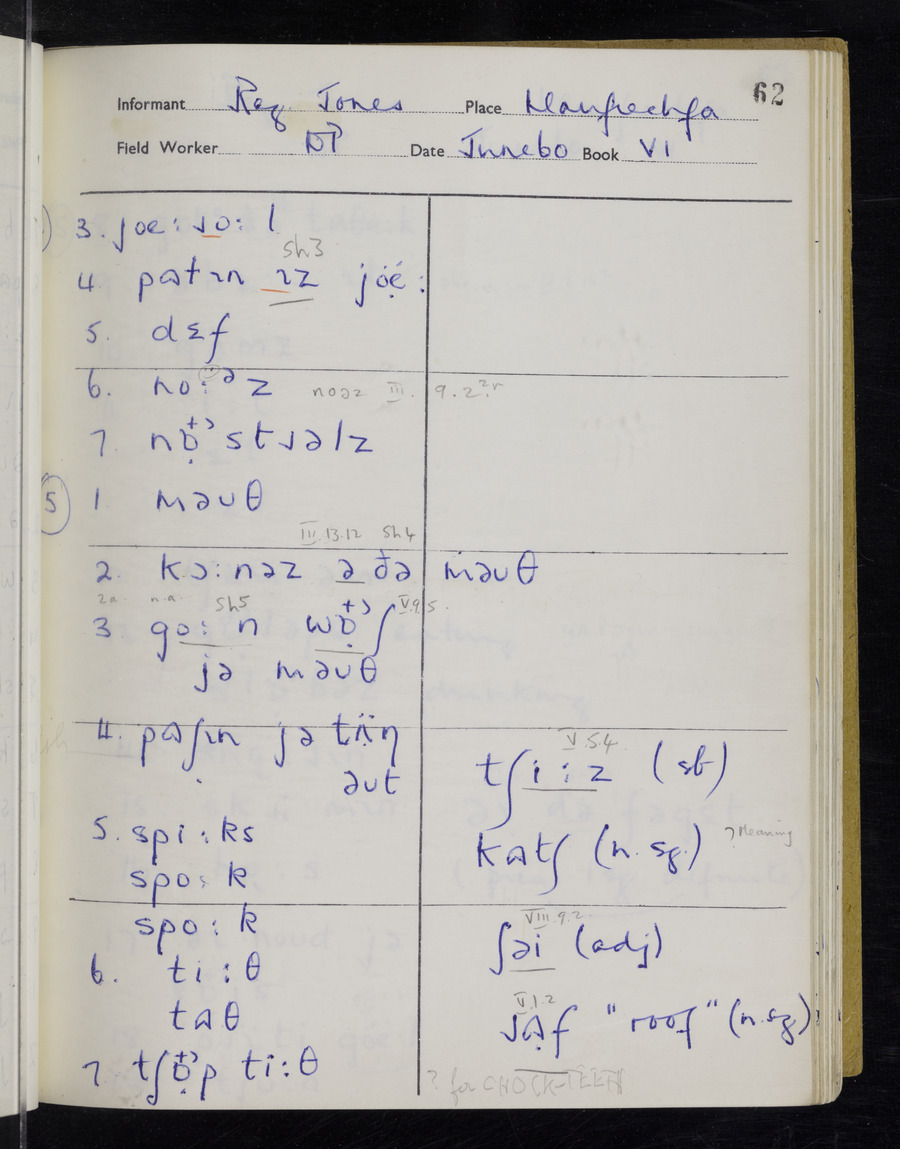 62
Informant Reg Jones Place Llanfrechfa
Field Worker DP Date June 60 Book VI
3. jœ:ɹɔ:l
sh3
4. pɷtɪn ɪz jœ:
5. dɛf
6. no:ə z noəz III. 9.2
7. nɒstɹəlz
5 1 məʊθ
III.13.12 sh4
2. kɔ:nəz ə ðə məʊθ
2a. n.a. sh5 V.9.5.
3 go:n wɒʃ
jə məʊθ
4. pɷʃɪn jə tïŋ
əʊt
V.5.4
tʃi:z (sb)
5. spi:ks
spo:k
kɷtʃ (n. sg.) ? Meaning
spo:k
VIII.9.2
ʃəi (adj)
6. ti:θ
tɷθ
V.1.2
ɹɷf "roof" (n. sg)
7 tʃɒp ti:θ
? for CHOCK-TEETH